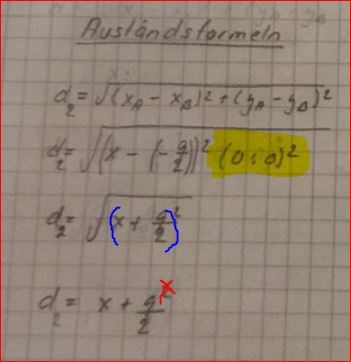 Auständsformeln
d₂ = √(x_A - x_B)² + (y_A - y_B)²
d₂ = √(x - (-g/2))² (0:0)²
d₂ = √(x + g/2²)
d₂ = x + g/2 x